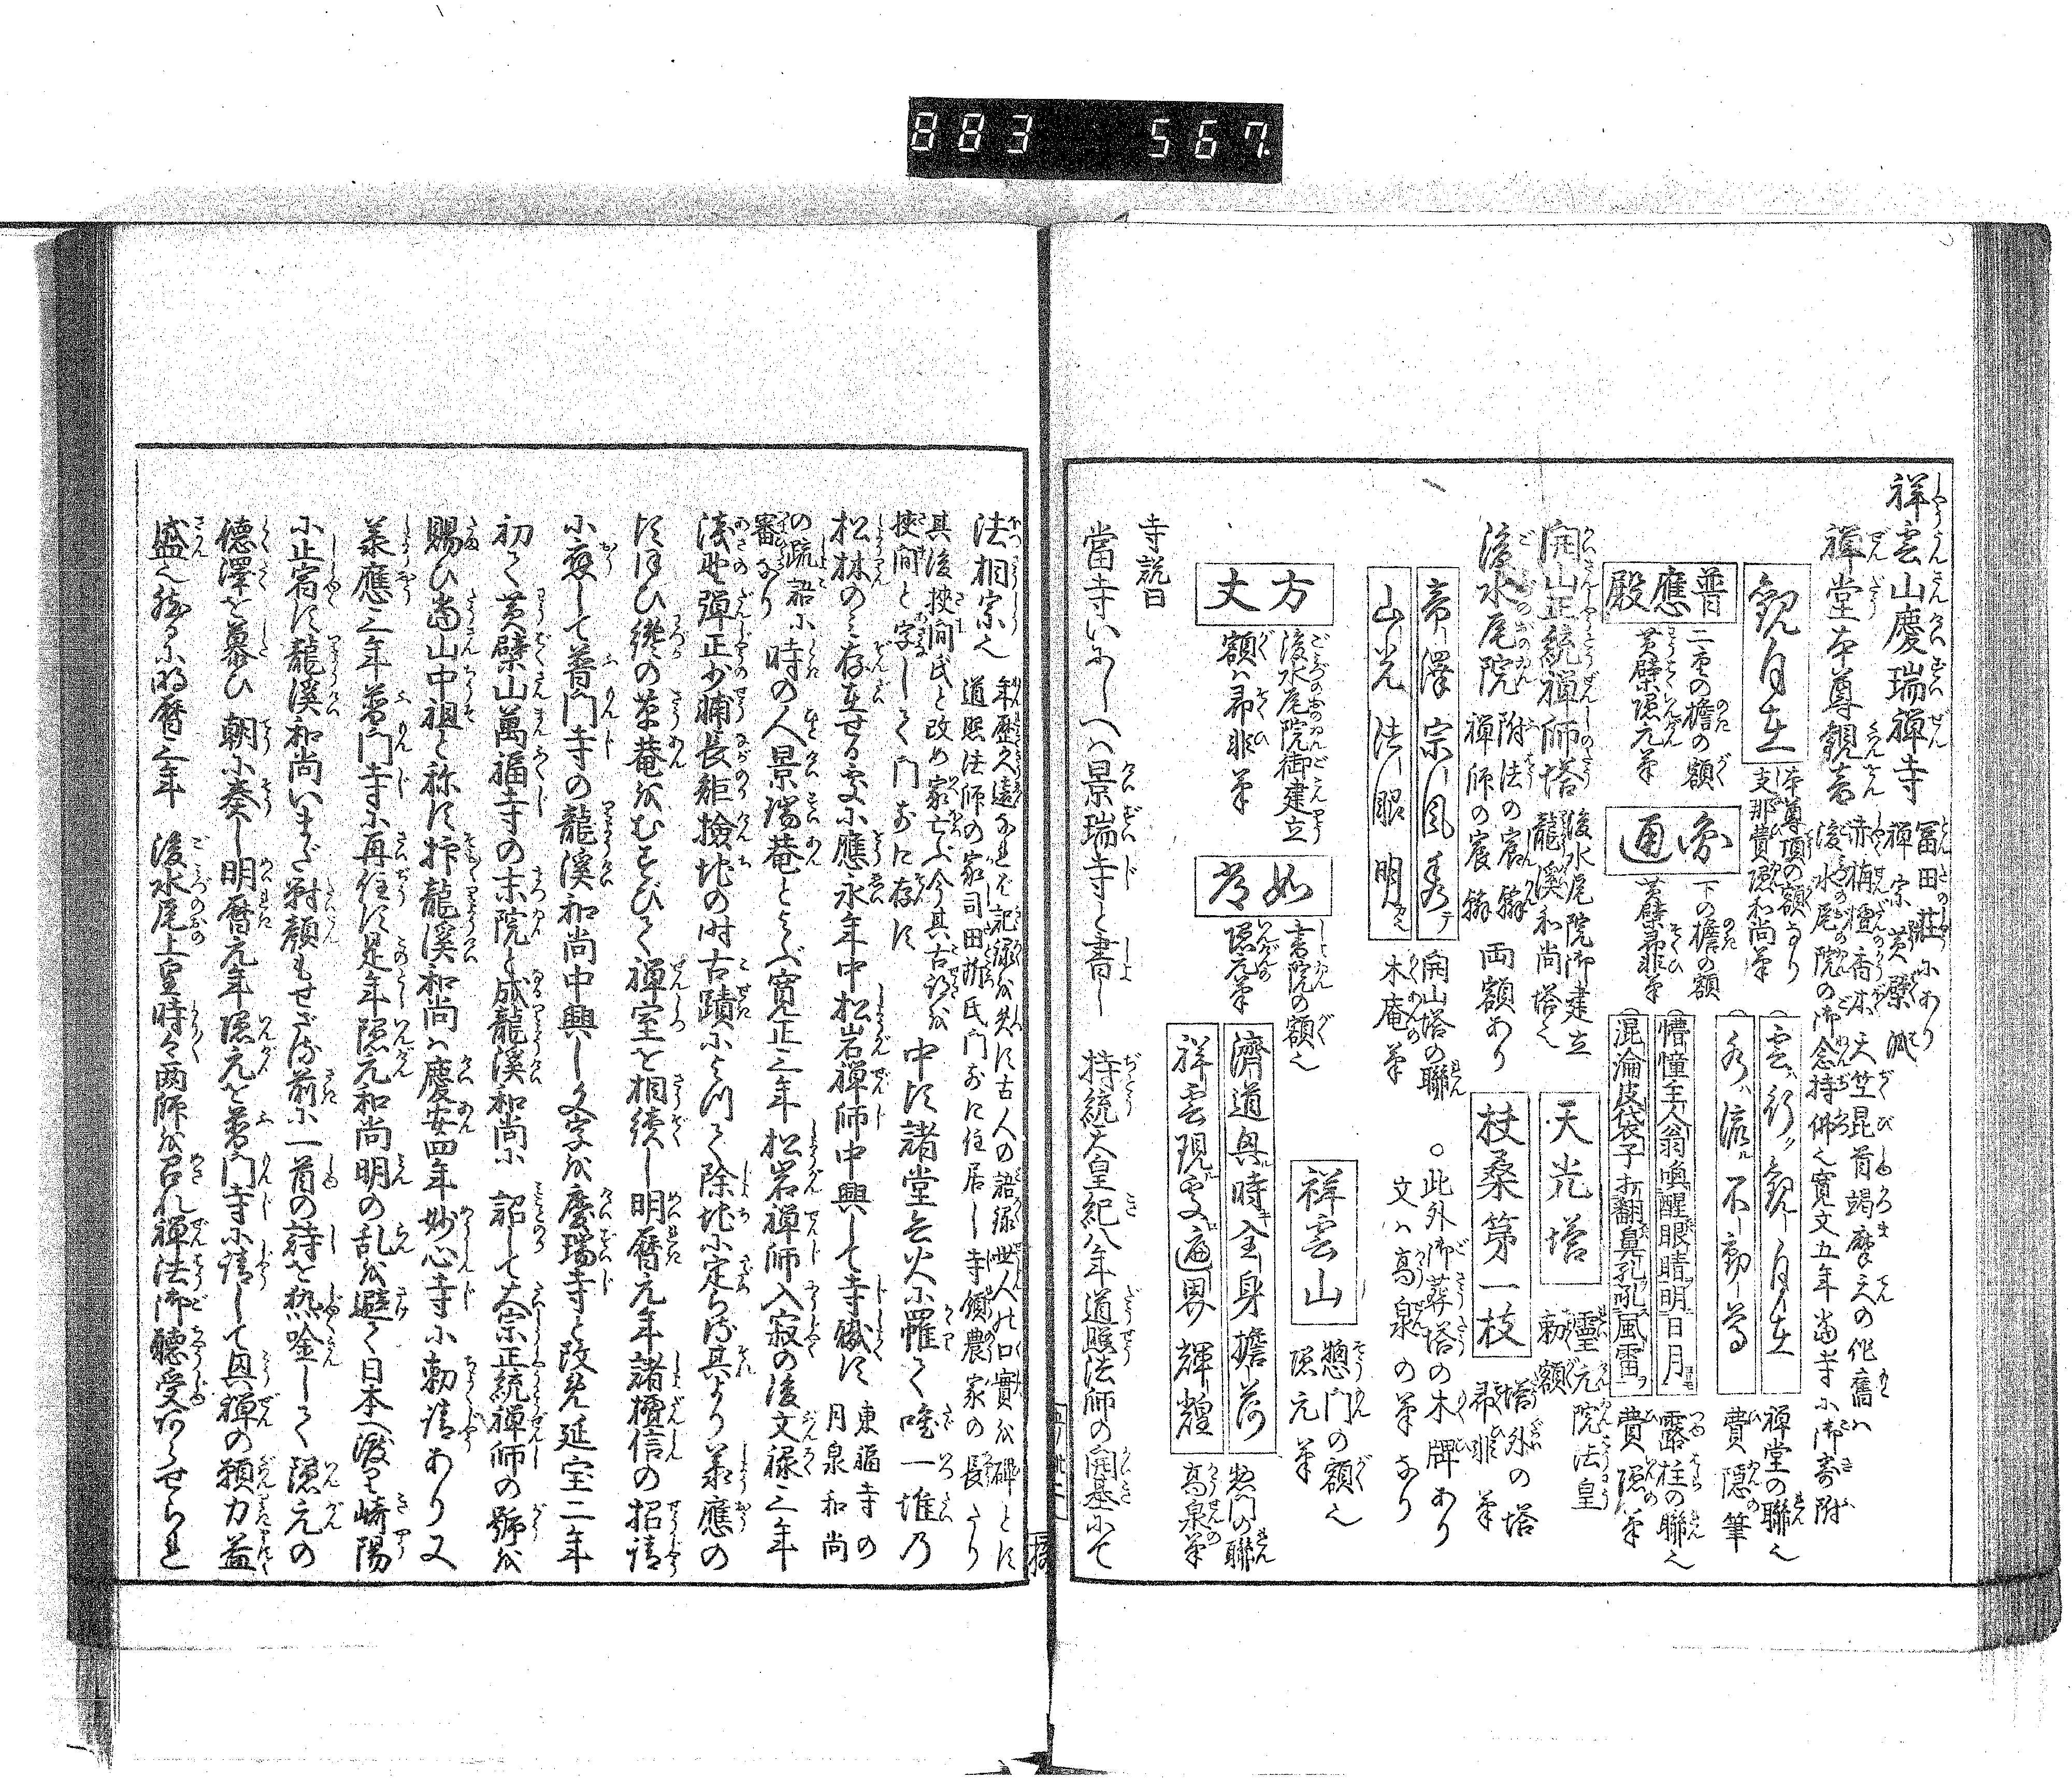 883 567.
祥雲山慶瑞禅寺
冨田荘にあり
禅宗黄檗派
禅堂本尊観音
赤栴檀香木天竺毘首羯摩天の作舊ハ
後水尾院の御念持佛也寛文五年當寺に御寄附
観自在
本尊頂の額なり
支那費隠和尚筆
雲行観自在
水流不動尊
禅堂の聯也
費隠の筆
普應殿
二重の檐の額
黄檗隠元筆
圓通
下の檐の額
黄檗即非筆
懵憧主人翁喚醒眼睛明日月
混淪皮袋子打翻鼻孔吼風雷
露柱の聯也
費隠の筆
開山正統禅師塔
後水尾院御建立
龍溪和尚塔也
天光塔
霊元院法皇
勅額
後水尾院
附法の宸翰
禅師の宸翰
両額あり
扶桑第一枝
塔外の塔
即非筆
帝澤宗風秀
山光法眼明
開山塔の聯
木庵の筆
○此外御葬塔の木牌あり
文ハ高泉の筆なり
方丈
後水尾院御建立
額ハ即非筆
如常
書院の額也
隠元筆
祥雲山
惣門の額也
隠元筆
濟道與時全身擔荷
祥雲現處遍界輝煌
惣門の聯
高泉の筆
寺説曰
當寺いにしへハ景瑞寺と書し持統天皇紀八年道照法師の開基にて
法相宗也
年歴久遠なれバ記録を失す古人の語録世人の口實を碑とす
道照法師の家司田所氏門前に住居し寺領農家の長たり
其後挾間氏と改め家亡ぶ今其古跡を
挾間と字して門前に存す
中ごろ諸堂兵火に罹て唯一堆乃
松林のミ存在せる處に應永年中松岩禅師中興して寺號す
東福寺の
月泉和尚
の疏語に
審なり
時の人景瑞菴とよぶ寛正三年松岩禅師入寂の後文禄三年
浅野弾正少輔長矩撿地の時古蹟によつて除地に定らる其より承應の
末まで
の草菴をむすびて禅室を相續し明暦元年諸檀信の招請
に應じて普門寺の龍溪和尚中興し文字を慶瑞寺と改免延宝二年
初て黄檗山萬福寺の末院と成龍溪和尚に詔して大宗正統禅師の号を
賜ひ當山中祖と称す抑龍溪和尚ハ慶安四年妙心寺に勅請あり又
承應三年普門寺に再住す是年隠元和尚明の乱を避て日本へ渡り崎陽
に止宿す龍溪和尚いまだ對顔もせざる前に一首の詩を熟唫して隠元の
德澤を慕ひ朝に奏し明暦元年隠元を普門寺に請して與禅の願力益
盛也然るに明暦三年後水尾上皇時々両師を召れ禅法御聴受ならせられ